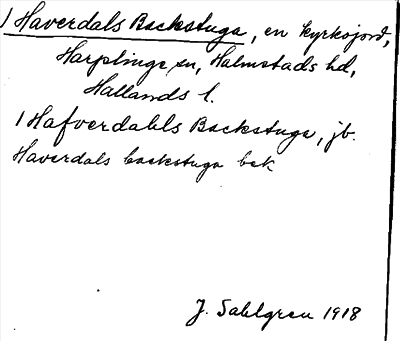 1 Haverdals Backstuga, en kyrkojord,
Harplinge sn, Halmstads hd,
Hallands l.
1 Hafverdahls Backstuga, jb.
Haverdals backstuga bek
J. Sahlgren 1918